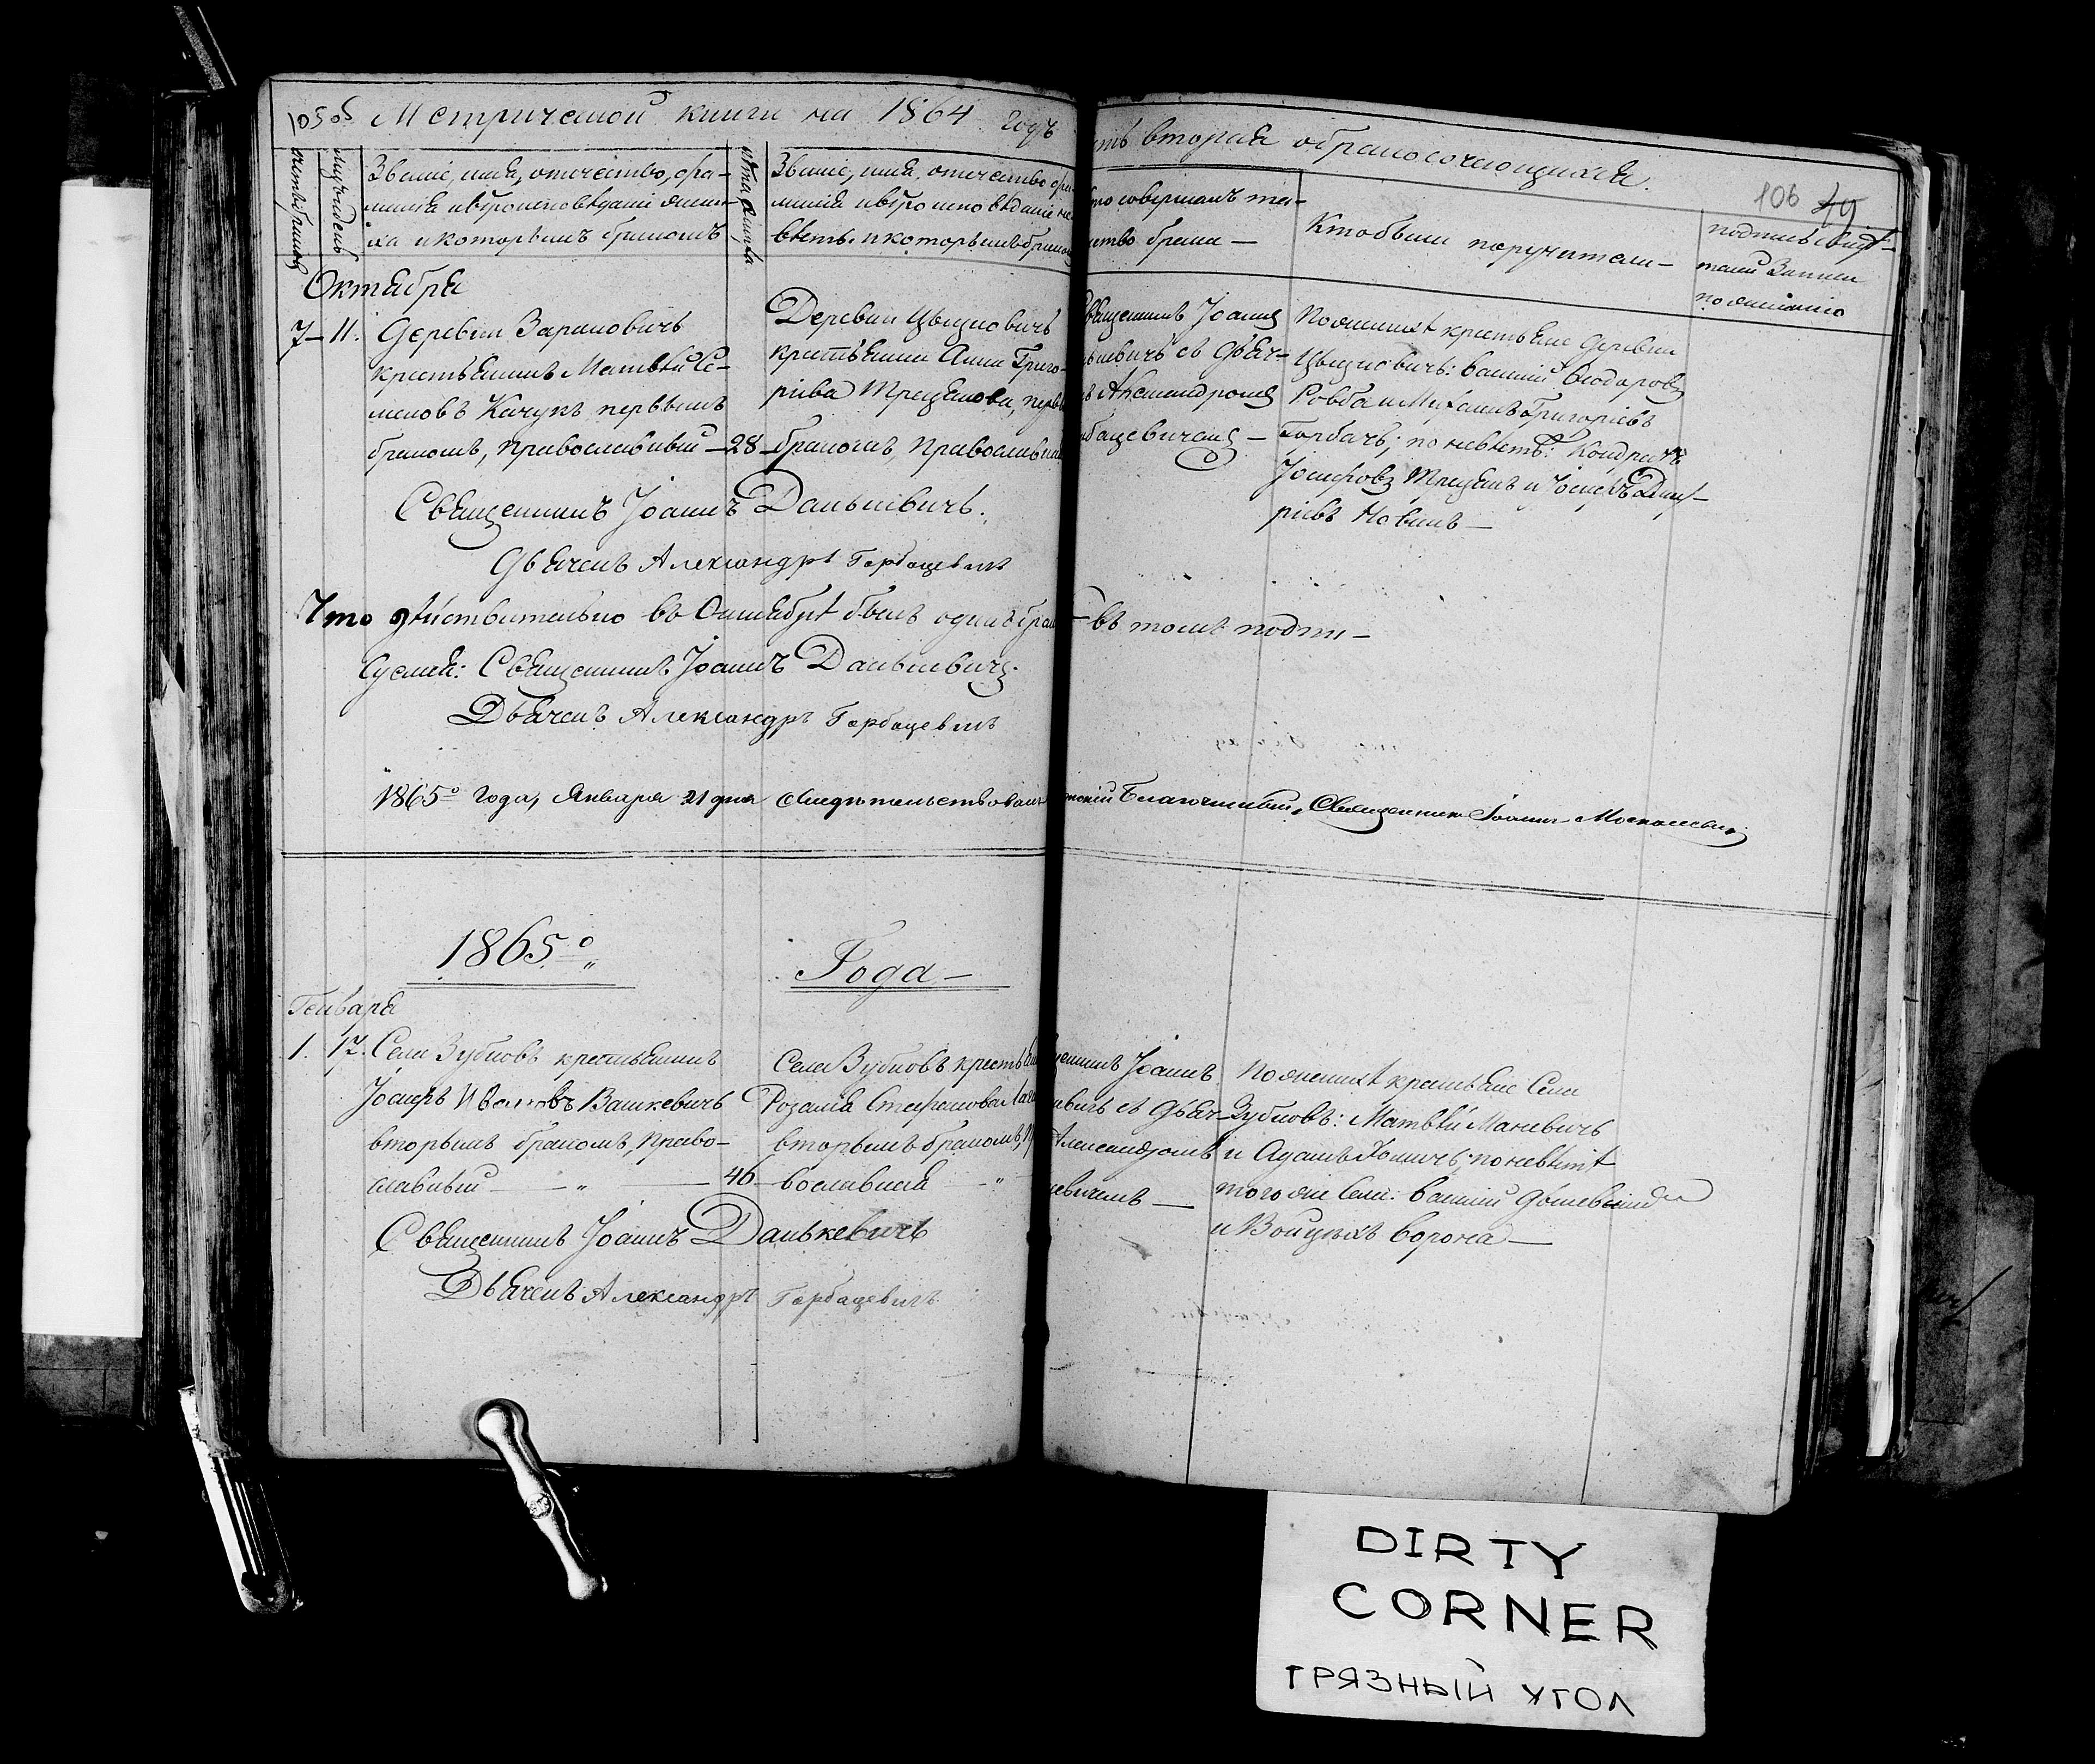 105 об Метрической книги на 1864 годъ
сть вторая о бракосочетающихся.
106
Званіе, имя, отчество, фа-
милія и вѣроисповѣданіе жени-
ха и которымъ бракомъ
лѣта жениха
Званіе, имя, отчество фа-
милія и вѣроисповѣданіе не
вѣсты и которымъ бракомъ
то совершалъ та-
инство брака —
Кто были поручители —
подпись свидѣ-
телей записи
по желанію
Октября
7 — 11. Деревни
крестьянинъ Матвѣй Се-
меновъ Качукъ первымъ
бракомъ, православный — 28
Деревни Цвицновичъ
крестьянка Анна Григо-
ріева первы
бракомъ, Православна
Священникъ Іоаннъ
ькевичъ съ дьяч-
ъ Александромъ
бацевичемъ —
По женихѣ крестьяне деревни
Цвицновичъ: Василій Ѳеодоровъ
Ровба и Михаилъ Григоріевъ
Горбачъ; по невѣстѣ: Кондратъ
Іосифовъ и Іосифъ Дмит-
ріевъ Новикъ —
Священникъ Іоаннъ Данькевичъ.
Дьячекъ Александръ Горбацевичъ
Что дѣйствительно въ Октябрѣ былъ одинъ брак — въ томъ подпи-
суемся: Священникъ Іоаннъ Данькевичъ.
Дьячекъ Александръ Горбацевичъ
1865º года, Января 21 дня свидѣтельствовалъ Благочинный, Священникъ Іоаннъ
1865º Года —
Генваря
1. 17. Села Зубковъ крестьянинъ
Іосифъ Ивановъ Вашкевичъ
вторымъ бракомъ, право-
славный — „ — 46
Села Зубковъ крестьян
Розалія Стефанова
вторымъ бракомъ, п
вославная — „
щенникъ Іоаннъ
кевичъ съ дьяч-
Александромъ
цевичемъ —
По женихѣ крестьяне Села
Зубковъ: Матвѣй Маневичъ
и Адамъ Хомичъ; по невѣстѣ
того же Села: Василій
и Войцѣхъ Ворона —
Священникъ Іоаннъ Данькевичъ
Дьячекъ Александръ Горбацевичъ
DIRTY
CORNER
ГРЯЗНЫЙ УГОЛ